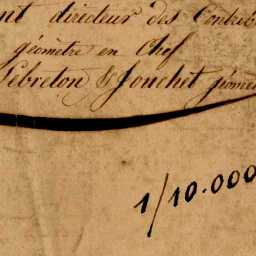 nt directeur des Contrib
géomètre en Chef
Lebreton & Jouchet géomè
1/10.000